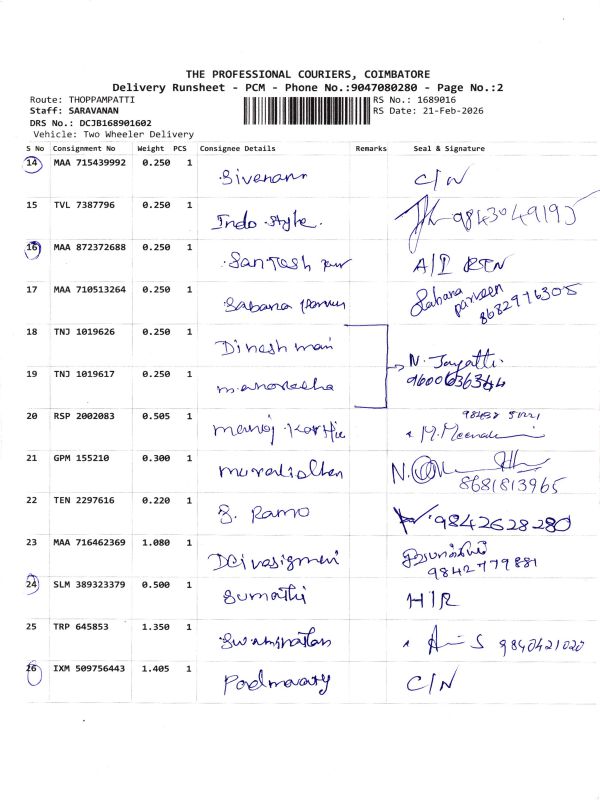 THE PROFESSIONAL COURIERS, COIMBATORE
Delivery Runsheet - PCM - Phone No.:9047080280 - Page No.:2
Route: THOPPAMPATTI RS No.: 1689016
Staff: SARAVANAN RS Date: 21-Feb-2026
DRS No.: DCJB168901602
Vehicle: Two Wheeler Delivery
S No Consignment No Weight PCS Consignee Details Remarks Seal & Signature
14 MAA 715439992 0.250 1 C/N
15 TVL 7387796 0.250 1 Indo Style. 9843049195
16 MAA 872372688 0.250 1 Santosh A/I RTN
17 MAA 710513264 0.250 1 Sabana Parveen Sabana parveen 8682976305
18 TNJ 1019626 0.250 1 Dinesh mani
N. 
19 TNJ 1019617 0.250 1
20 RSP 2002083 0.505 1 manoj M. Meenak
21 GPM 155210 0.300 1 N. 8681813965
22 TEN 2297616 0.220 1 S. Ramo 9842628280
23 MAA 716462369 1.080 1 9842779881
24 SLM 389323379 0.500 1 Sumathi HIR
25 TRP 645853 1.350 1 Swaminathan 9840421020
26 IXM 509756443 1.405 1 C/N